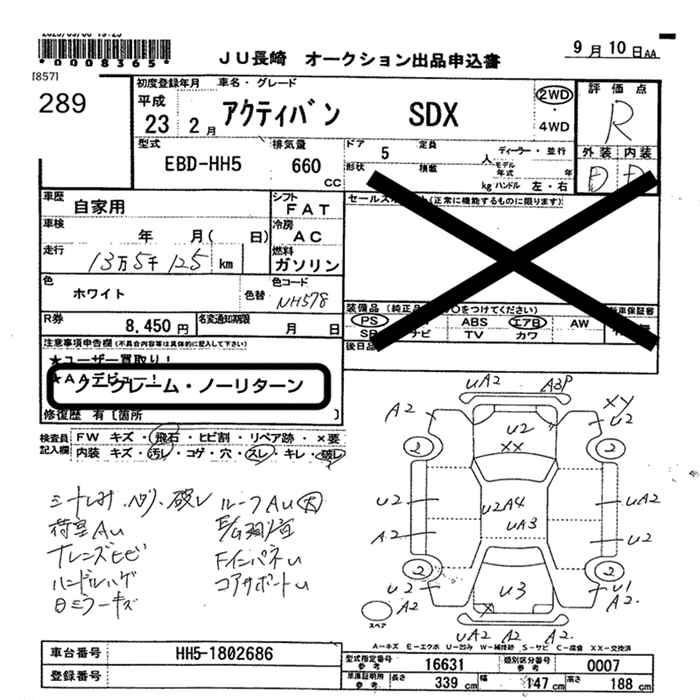 *0008365*
JU長崎 オークション出品申込書
9月10日AA
[857]
289
初度登録年月
車名・グレード
平成
23 2月
アクティバン SDX
2WD
・
4WD
評価点
R
型式
EBD-HH5
排気量
660
CC
ドア
5
定員
人
ディーラー・並行
モデル年式 年
形状
積載
kg ハンドル 左・右
外装 内装
D D
車歴
自家用
シフト
FAT
車検
年 月( 日)
冷房
AC
走行
13万5千125 km
燃料
ガソリン
色
ホワイト
色替
色コード
NH578
R券
8,450円
名変通知期限
月 日
(正常に機能するものに限ります)
PS
ABS
エアB
AW
TV
カワ
注意事項申告欄(不具合内容等は具体的に記入して下さい)
★ユーザー買取り!
★AAデビュー!
ノークレーム・ノーリターン
修復歴 有〔箇所 〕
検査員記入欄
FW キズ・飛石・ヒビ割・リペア跡・×要
内装 キズ・汚レ・コゲ・穴・スレ・キレ・破レ
荷室AU
ルーフAU大
ハンドルハゲ
コアサポートU
UA2
A3P
A2
U2
XX
XY
U2
2
2
U2
U2A4
UA2
UA3
A2
U2
2
2
U2
A2
U3
X
U1
A2
UA2
A2
A2
スペア
A-キズ E-エクボ U-凹み W-補修跡 S-サビ C-腐食 XX-交換済
車台番号
HH5-1802686
登録番号
型式指定番号
参考
16631
類別区分番号
参考
0007
車庫証明所
参考
長さ
339 cm
幅
147 cm
高さ
188 cm